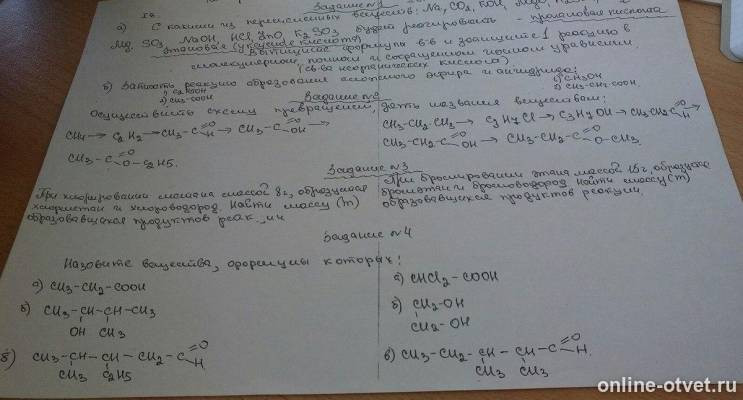 Задание №1
а) С какими из перечисленных веществ: Na, CO2, KOH, MgO,
Mg, SO3, NaOH, HCl, ZnO, K2SO3 будет реагировать - пропановая кислота
этановая (уксусная кислота)
Выпишите формулы в-в и запишите 1 реакцию в
молекулярном, полном и сокращенном ионном уравнении
(св-ва неорганических кислот)
б) Записать реакцию образования сложного эфира и ангидрида:
2) CH3-COOH
1) CH3OH
2) CH3-CH2-COOH
Задание №2
Осуществить схему превращений, дать названия веществам:
CH4 → C2H2 → CH3-C=O H → CH3-C=O OH →
CH3-C=O O-C2H5.
CH3-CH2-CH3 → C3H7Cl → C3H7OH → CH3CH2C=O H →
CH3-CH2-C=O OH → CH3-CH2-C=O O-CH3.
Задание №3
При хлорировании метана массой 8г, образуется
хлорметан и хлороводород. Найти массу (m)
образовавшихся продуктов реак ии
При бромировании этана массой 15г, образуется
бромэтан и бромоводород. Найти массу (m)
образовавшихся продуктов реакции.
Задание №4
Назовите вещества, формулы которых:
а) CH3-CH2-COOH
б) CH3-CH-CH-CH3
OH CH3
в) CH3-CH-CH-CH2-C=O H
CH3 C2H5
а) CHCl2-COOH
б) CH2-OH
CH2-OH
в) CH3-CH2-CH-CH-C=O H.
CH3 CH3
online-otvet.ru